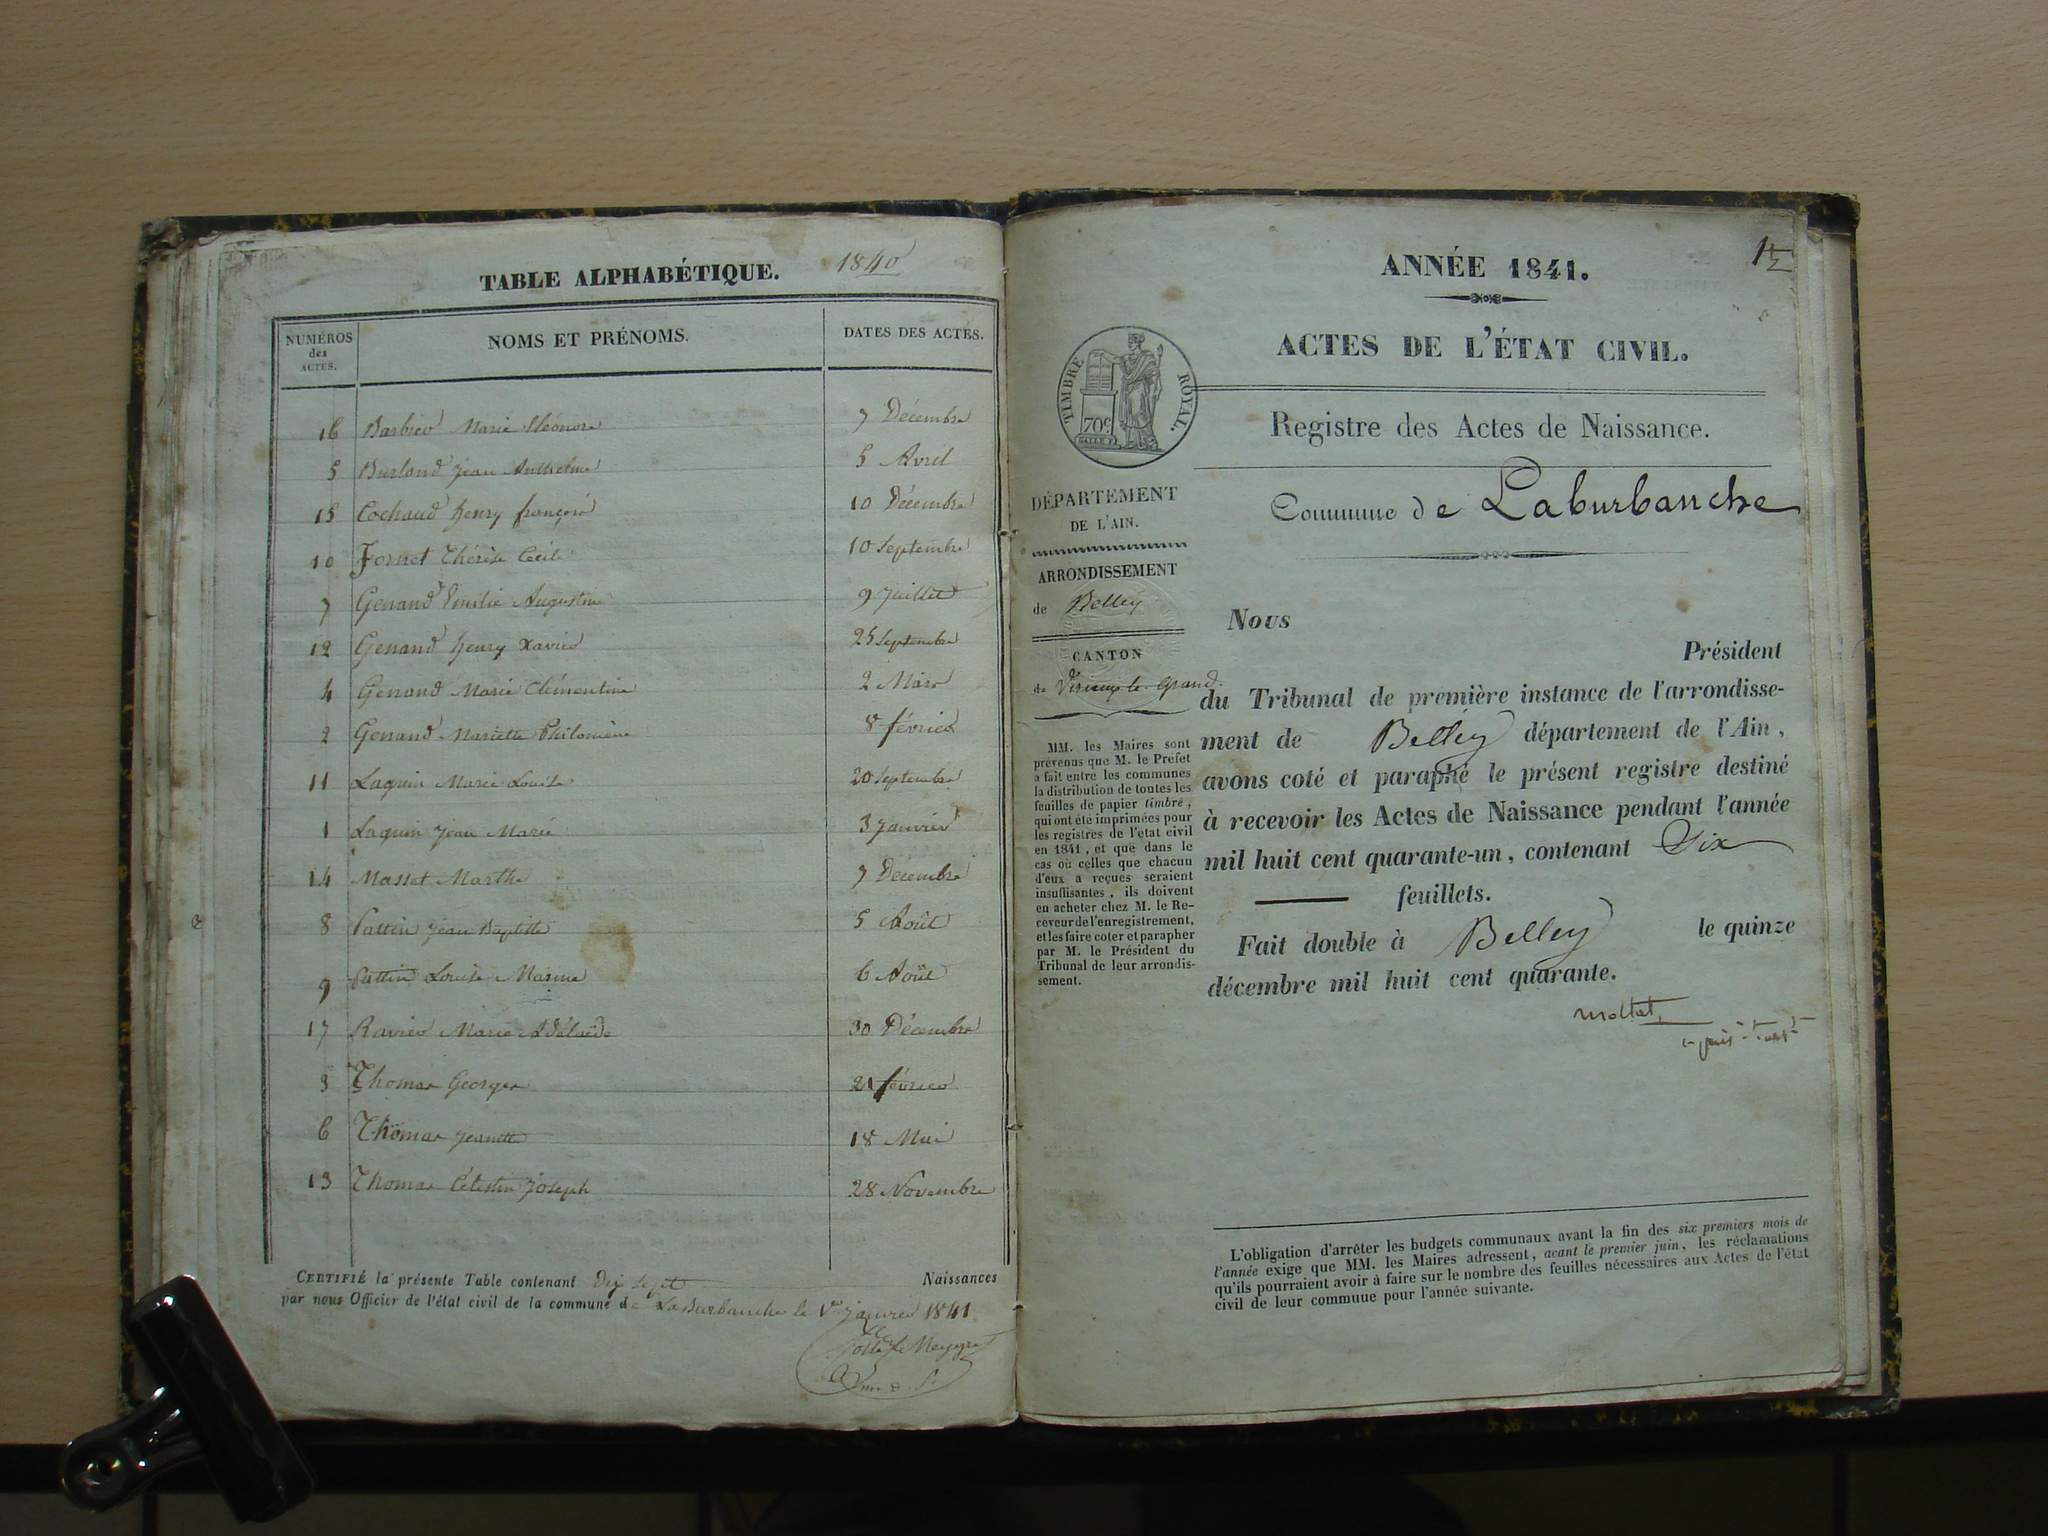 TABLE ALPHABÉTIQUE. 1840
NUMÉROS des ACTES. NOMS ET PRÉNOMS. DATES DES ACTES.
16 Barbier Marie Eléonore 7 Décembre
5 Burland Jean Anthelme 5 Avril
15 Cochaud henry françois 10 Décembre
10 Fornet Thérèse Cécile 10 Septembre
7 Genand Emilie Augustine 9 Juillet
12 Genand henry Xavier 25 Septembre
4 Genand Marie Clémentine 2 Mars
2 Genand Mariette Philomène 8 février
11 Laquin Marie Louise 20 Septembre
1 Laquin Jean Marie 3 Janvier
14 Masset Marthe 7 Décembre
8 Pattin Jean Baptiste 5 Août
9 Pattin Louise Marine 6 Août
17 Ravier Marie Adélaïde 30 Décembre
3 Thomas Georges 21 février
6 Thomas Jeanette 18 Mai
13 Thomas Célestin Joseph 28 Novembre
CERTIFIÉ la présente Table contenant Dix Sept Naissances
par nous Officier de l'état civil de la commune de La Burbanche le 1er Janvier 1841
ANNÉE 1841.
ACTES DE L'ÉTAT CIVIL.
TIMBRE ROYAL.
70c
Registre des Actes de Naissance.
Commune de Laburbanche
DÉPARTEMENT
DE L'AIN.
ARRONDISSEMENT
de Belley
CANTON
de Virieux le Grand.
MM. les Maires sont
prévenus que M. le Préfet
a fait entre les communes
la distribution de toutes les
feuilles de papier timbré,
qui ont été imprimées pour
les registres de l'état civil
en 1841, et que dans le
cas où celles que chacun
d'eux a reçues seraient
insuffisantes, ils doivent
en acheter chez M. le Re-
ceveur de l'enregistrement,
et les faire coter et parapher
par M. le Président du
Tribunal de leur arrondis-
sement.
Nous
Président
du Tribunal de première instance de l'arrondisse-
ment de Belley département de l'Ain,
avons coté et paraphé le présent registre destiné
à recevoir les Actes de Naissance pendant l'année
mil huit cent quarante-un, contenant Six
feuillets.
Fait double à Belley le quinze
décembre mil huit cent quarante.
L'obligation d'arrêter les budgets communaux avant la fin des six premiers mois de
l'année exige que MM. les Maires adressent, avant le premier juin, les réclamations
qu'ils pourraient avoir à faire sur le nombre des feuilles nécessaires aux Actes de l'état
civil de leur commune pour l'année suivante.